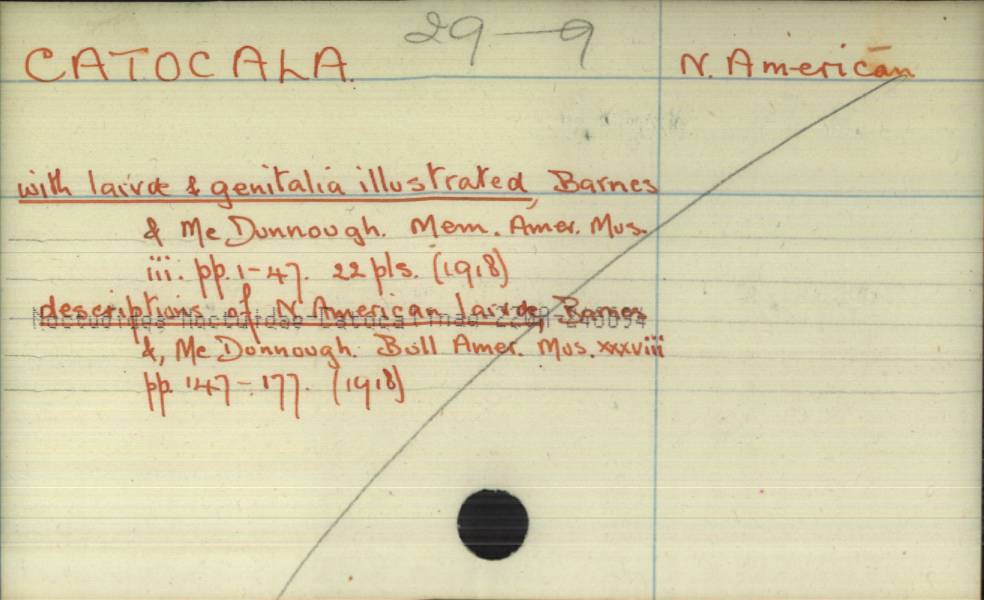 29-9
CATOCALA. N. American
with larvæ & genitalia illustrated, Barnes
& McDunnough. Mem. Amer. Mus.
iii. pp. 1-47. 22 pls. (1918)
descriptions of N. American larvæ, Barnes
Noctuoidea Noctuidae Catocalinae
&, McDunnough. Bull Amer. Mus. xxxviii
pp. 147-177. (1918)